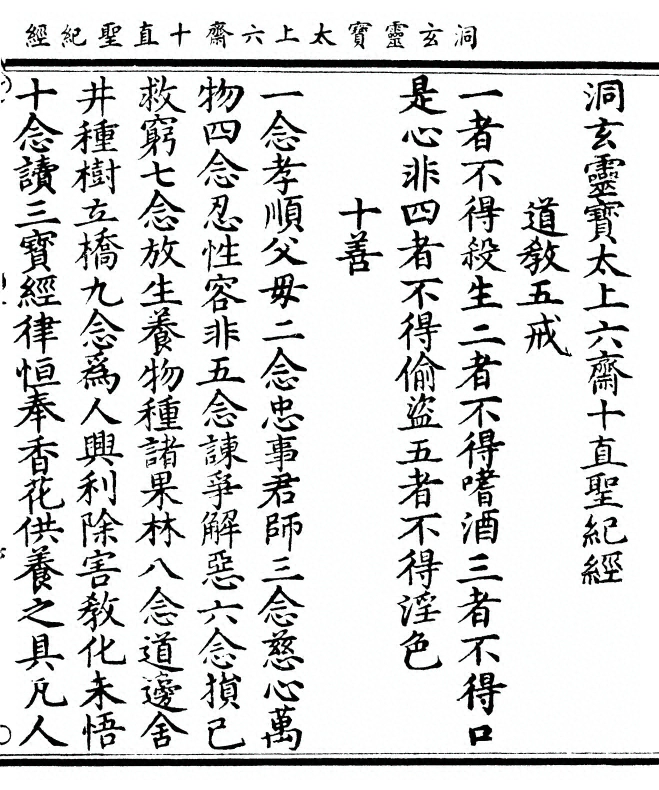 洞玄靈寶太上六齋十直聖紀經
洞玄靈寶太上六齋十直聖紀經
道教五戒
一者不得殺生二者不得嗜酒三者不得口
是心非四者不得偷盜五者不得淫色
十善
一念孝順父毋二念忠事君師三念慈心萬
物四念忍性容非五念諫爭解惡六念損己
救窮七念放生養物種諸果林八念道邊舍
井種樹立橋九念為人興利除害教化未悟
十念讀三寶經律恒奉香花供養之具凡人